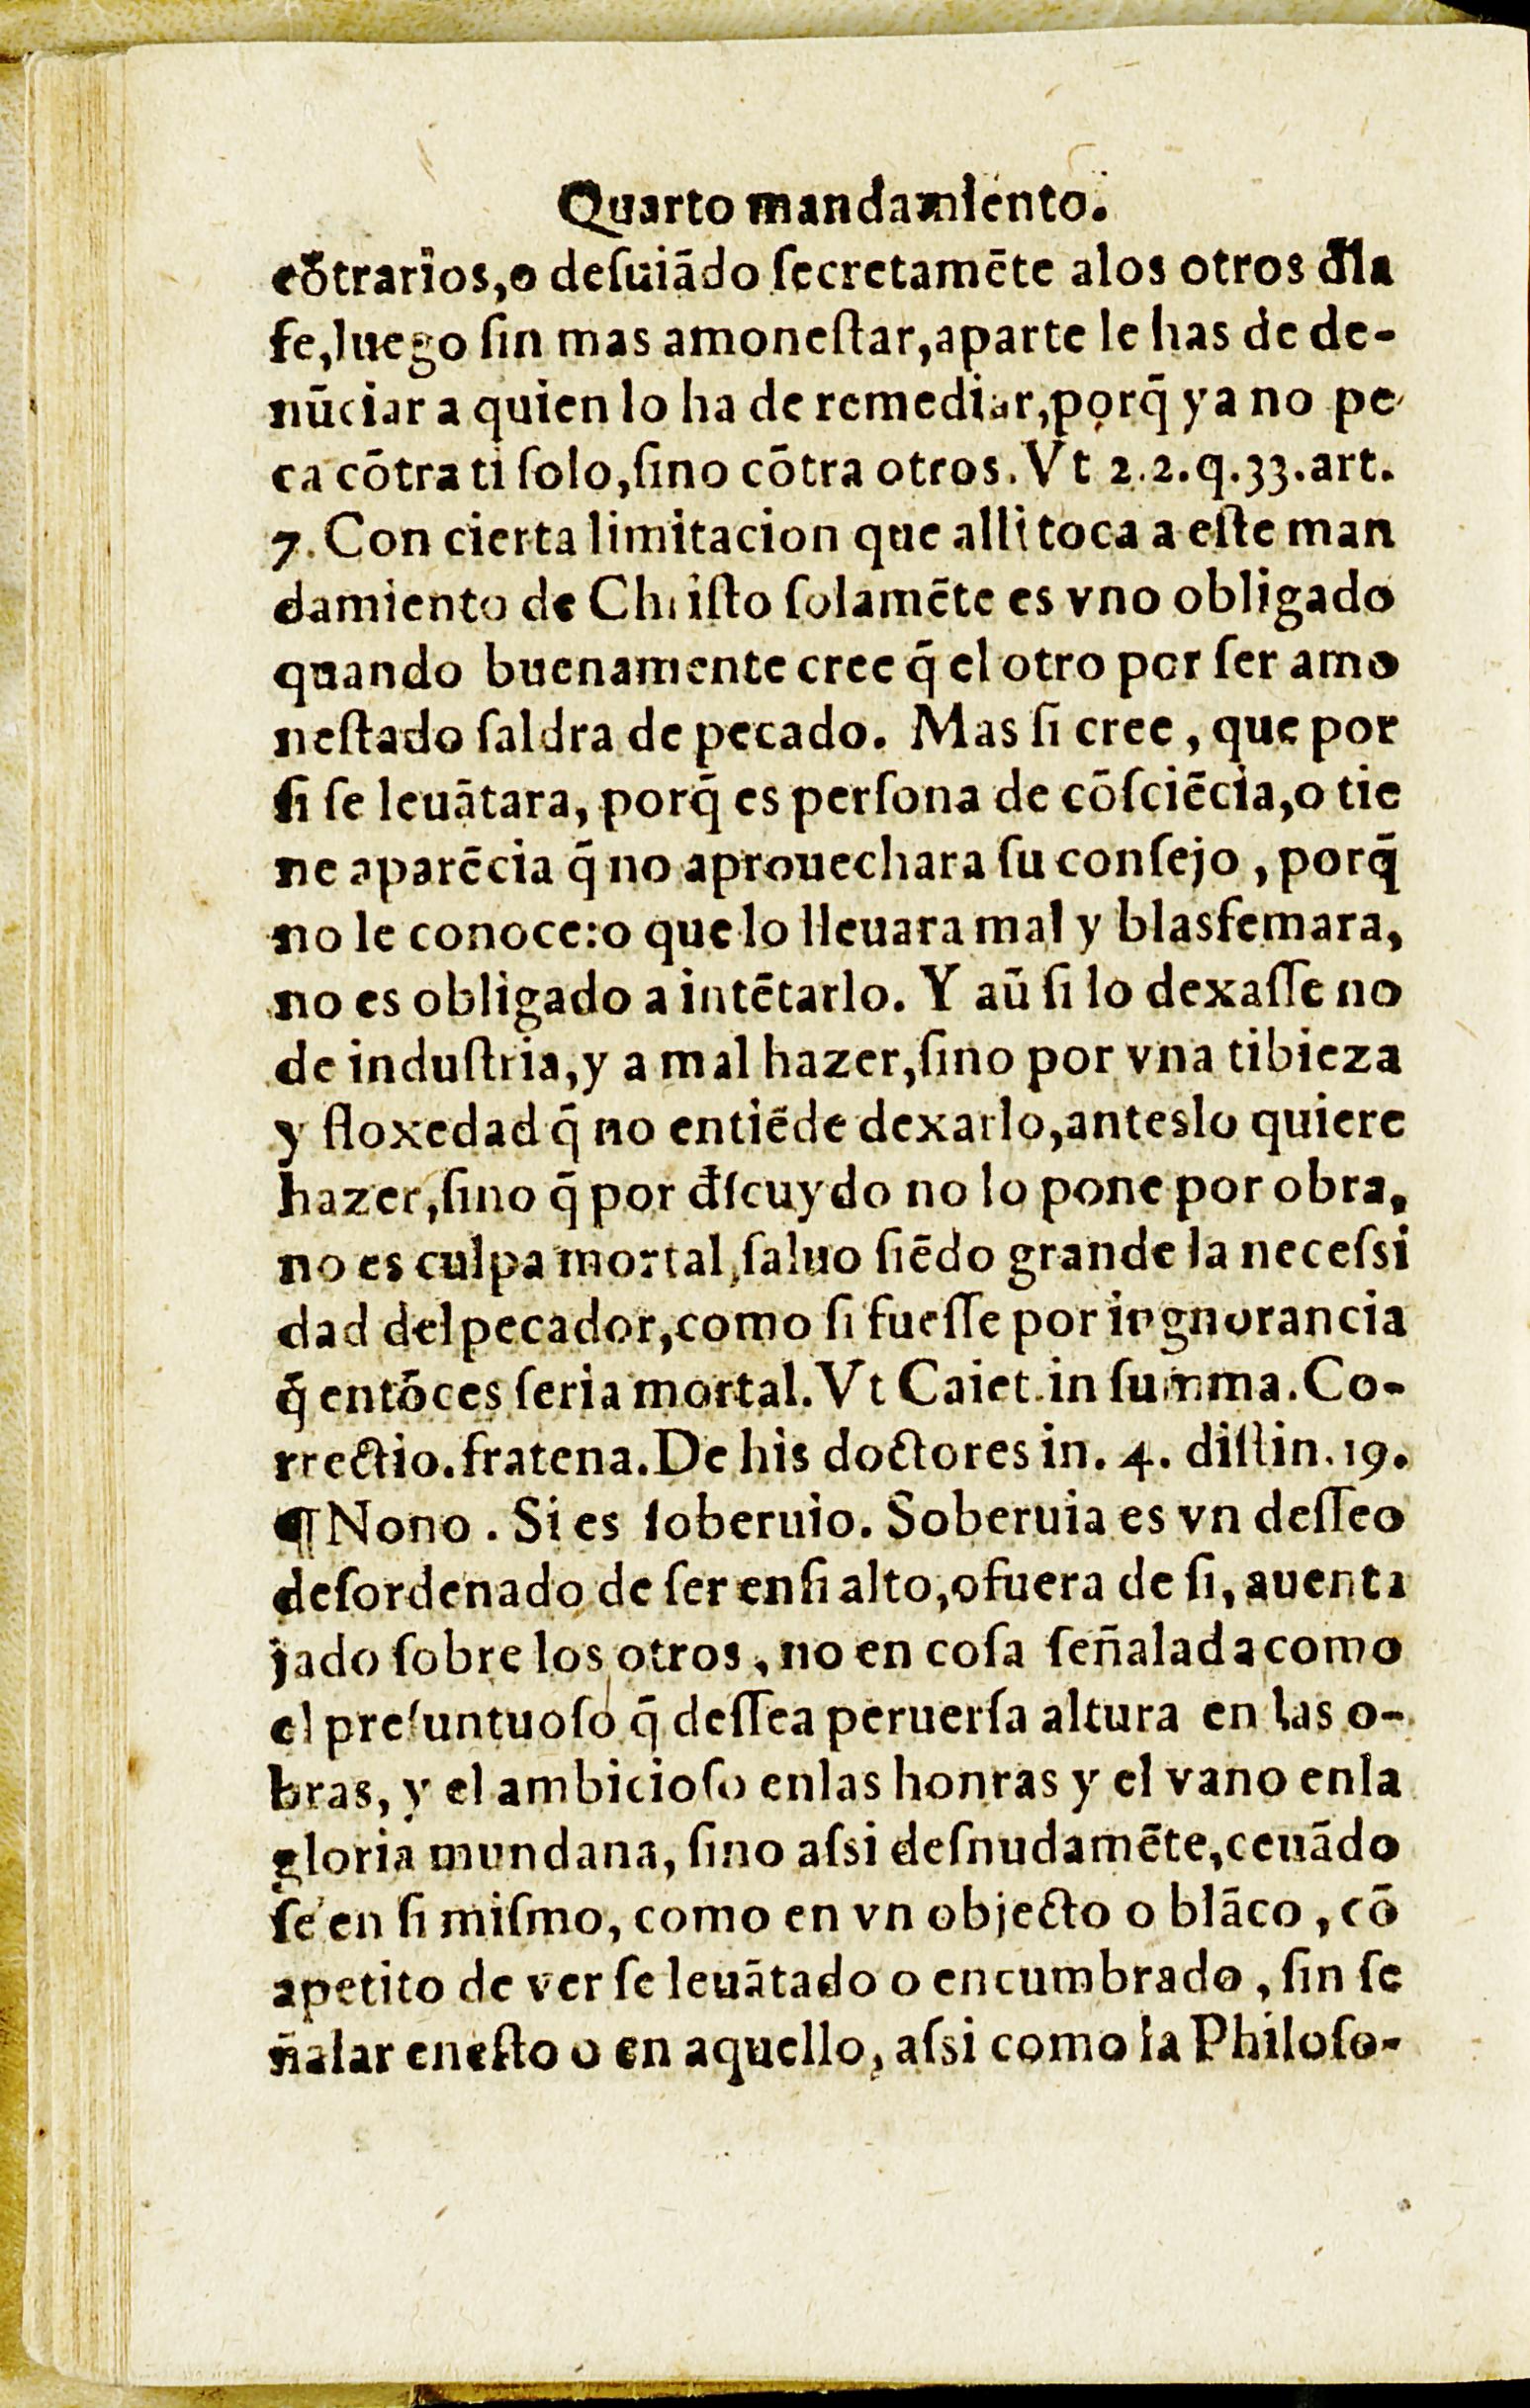 Quarto mandamiento.
cõtrarios,o deſuiãdo ſecretamẽte alos otros đla
fe,luego ſin mas amoneſtar,aparte le has de de-
nũciar a quien lo ha de remediar,porq̃ ya no pe
ca cõtra ti ſolo,ſino cõtra otros.Vt 2.2.q.33.art.
7.Con cierta limitacion que alli toca a eſte man
damiento de Chriſto ſolamẽte es vno obligado
quando buenamente cree q̃ el otro por ſer amo
neſtado ſaldra de pecado. Mas ſi cree, que por
ſi ſe leuãtara, porq̃ es perſona de cõſciẽcia,o tie
ne aparẽcia q̃ no aprouechara ſu conſejo, porq̃
no le conoce:o que lo lleuara mal y blasfemara,
no es obligado a intẽtarlo. Y aũ ſi lo dexaſſe no
de induſtria,y a mal hazer,ſino por vna tibieza
y floxedad q̃ no entiẽde dexarlo,anteslo quiere
hazer,ſino q̃ por đſcuydo no lo pone por obra,
no es culpa mortal,ſaluo ſiẽdo grande la neceſsi
dad del pecador,como ſi fueſſe por ingnorancia
q̃ entõces ſeria mortal.Vt Caiet.in ſumma.Co-
rrectio.fratena.De his doctores in. 4. diſtin.19.
¶Nono. Si es ſoberuio. Soberuia es vn deſſeo
deſordenado de ſer enſi alto,ofuera de ſi, auenta
jado ſobre los otros, no en coſa ſeñalada como
el preſuntuoſo q̃ deſſea peruerſa altura en las o-
bras, y el ambicioſo enlas honras y el vano enla
gloria mundana, ſino aſsi deſnudamẽte,ceuãdo
ſe en ſi miſmo, como en vn objecto o blãco, cõ
apetito de ver ſe leuãtado o encumbrado, ſin ſe
ñalar eneſto o en aquello, aſsi como la Philoſo-